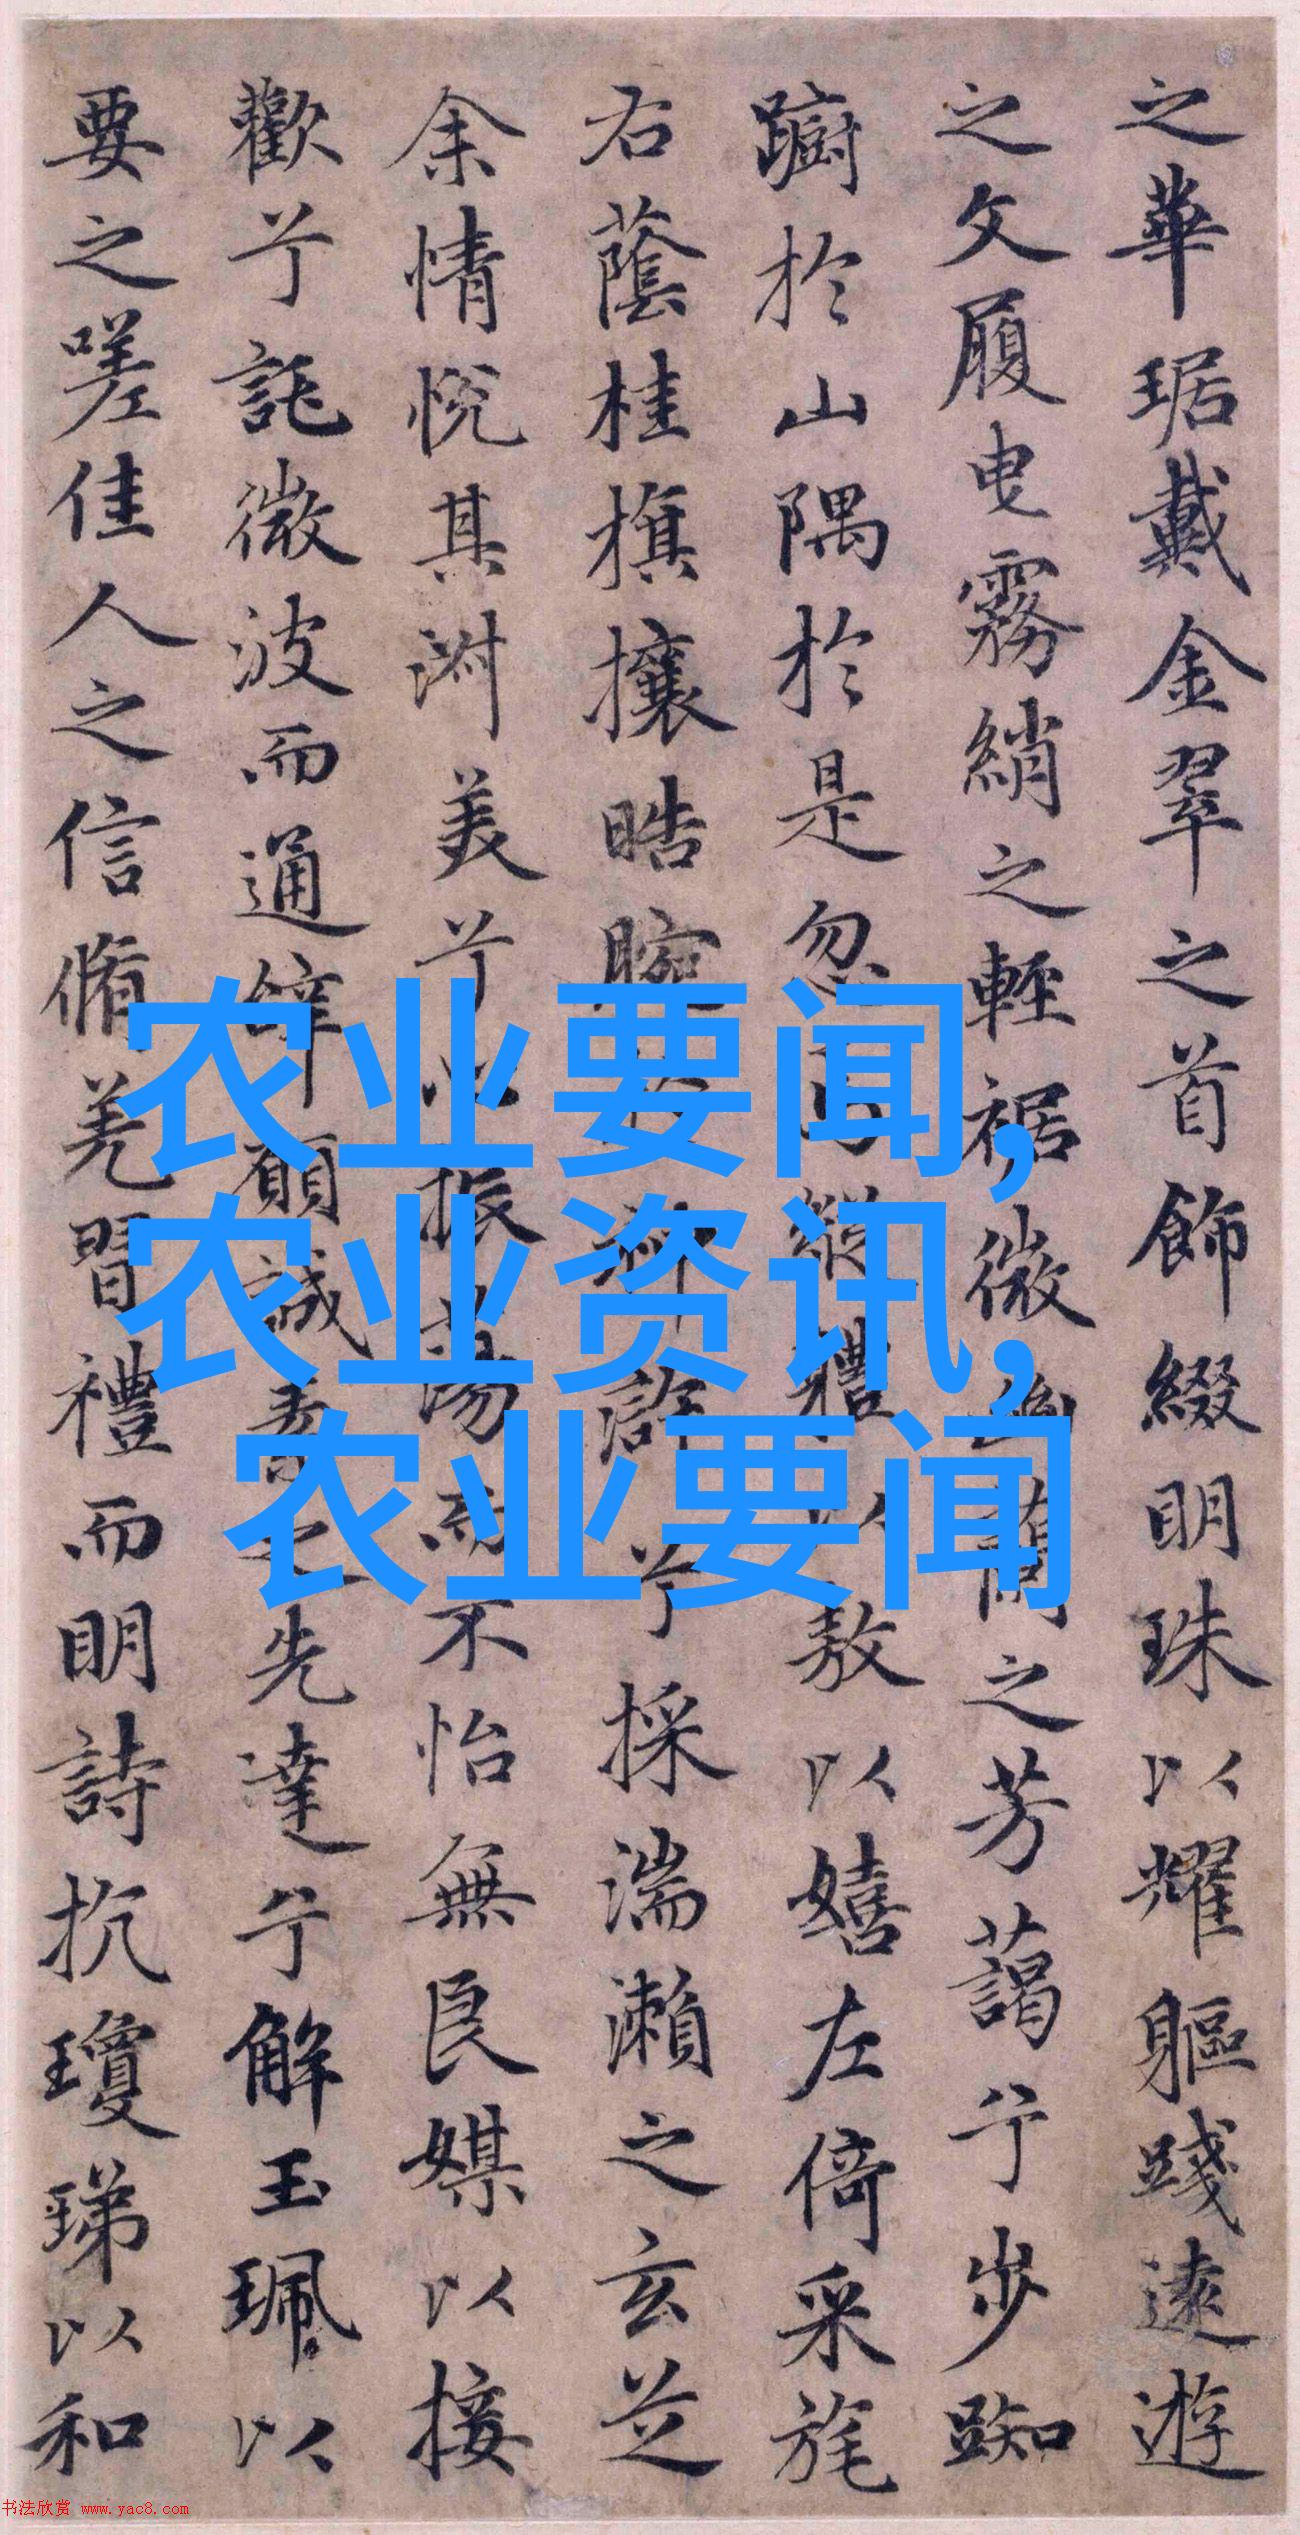 之華琚戴金翠之首飾綴明珠以耀軀踐遠遊
之文履曳霧綃之輕裾微幽蘭之芳藹兮步踟
躕於山隅於是忽焉縱體以敖以嬉左倚采旄
右蔭桂旗攘晧腕於神滸兮採湍瀨之玄芝
余情悅其淑美兮心振蕩而不怡無良媒以接
歡兮託微波而通辭願誠素之先達兮解玉珮以
要之嗟佳人之信脩羌習禮而明詩抗瓊珶以和
农业要闻,
农业资讯,
农业要闻
书法欣赏 www.yac8.com